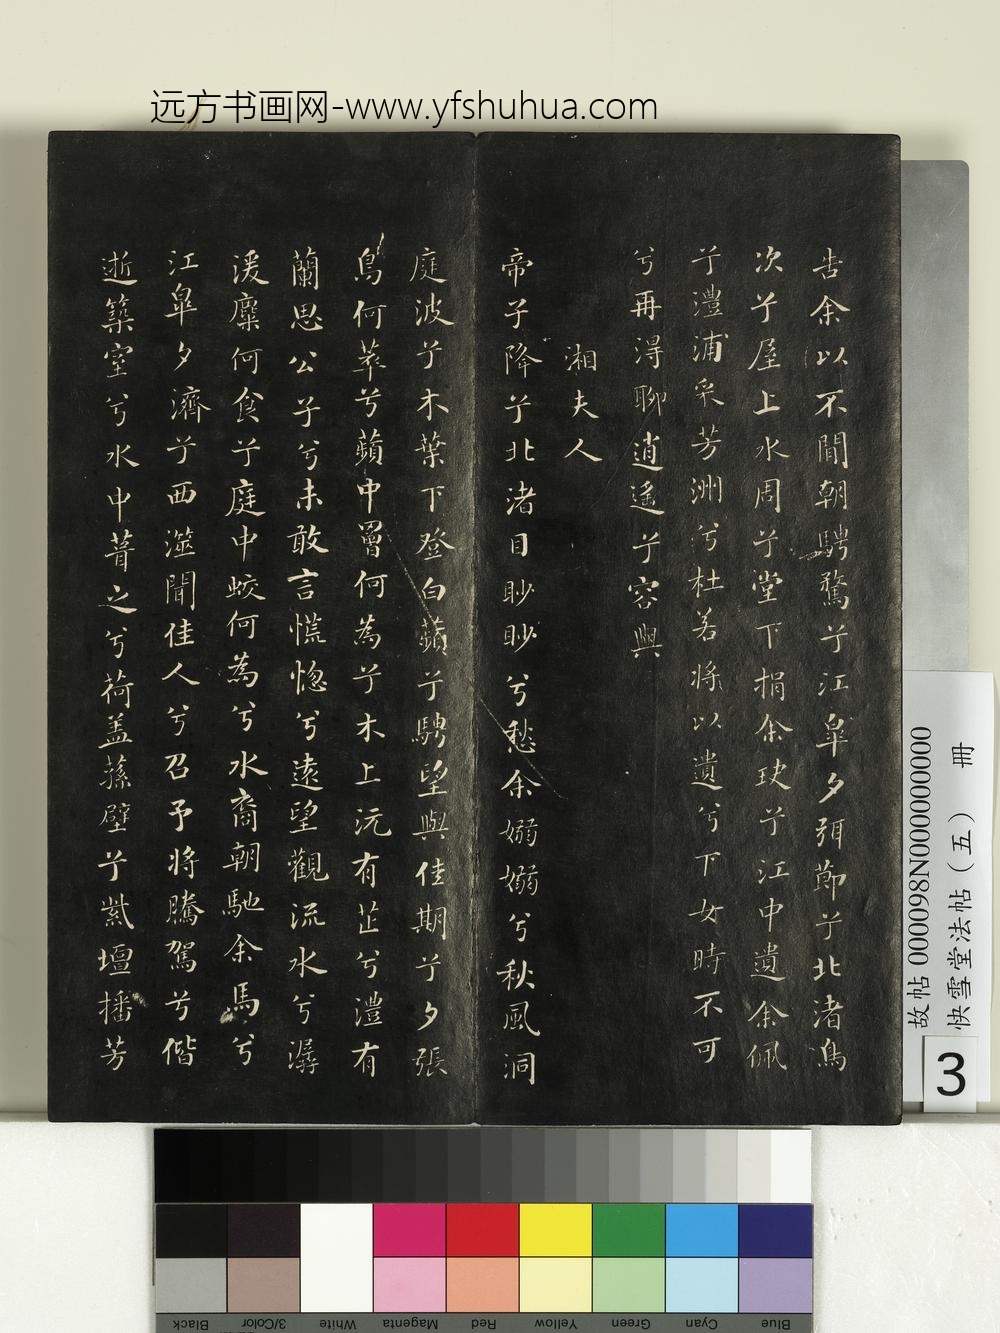 远方书画网-www.yfshuhua.com
告余以不閒朝騁騖兮江皐夕弭節兮北渚鳥
次兮屋上水周兮堂下捐余玦兮江中遺余佩
兮澧浦采芳洲兮杜若將以遺兮下女時不可
兮再得聊逍遙兮容與
湘夫人
帝子降兮北渚目眇眇兮愁余嫋嫋兮秋風洞
庭波兮木葉下登白蘋兮騁望與佳期兮夕張
鳥何萃兮蘋中罾何為兮木上沅有芷兮澧有
蘭思公子兮未敢言慌惚兮遠望觀流水兮潺
湲麋何食兮庭中蛟何為兮水裔朝馳余馬兮
江皐夕濟兮西澨聞佳人兮召予將騰駕兮偕
逝築室兮水中葺之兮荷盖蓀壁兮紫壇播芳
故帖 000098N000000000
快雪堂法帖（五） 冊
3
Black
3/Color
White
Magenta
Red
Yellow
Green
Cyan
Blue